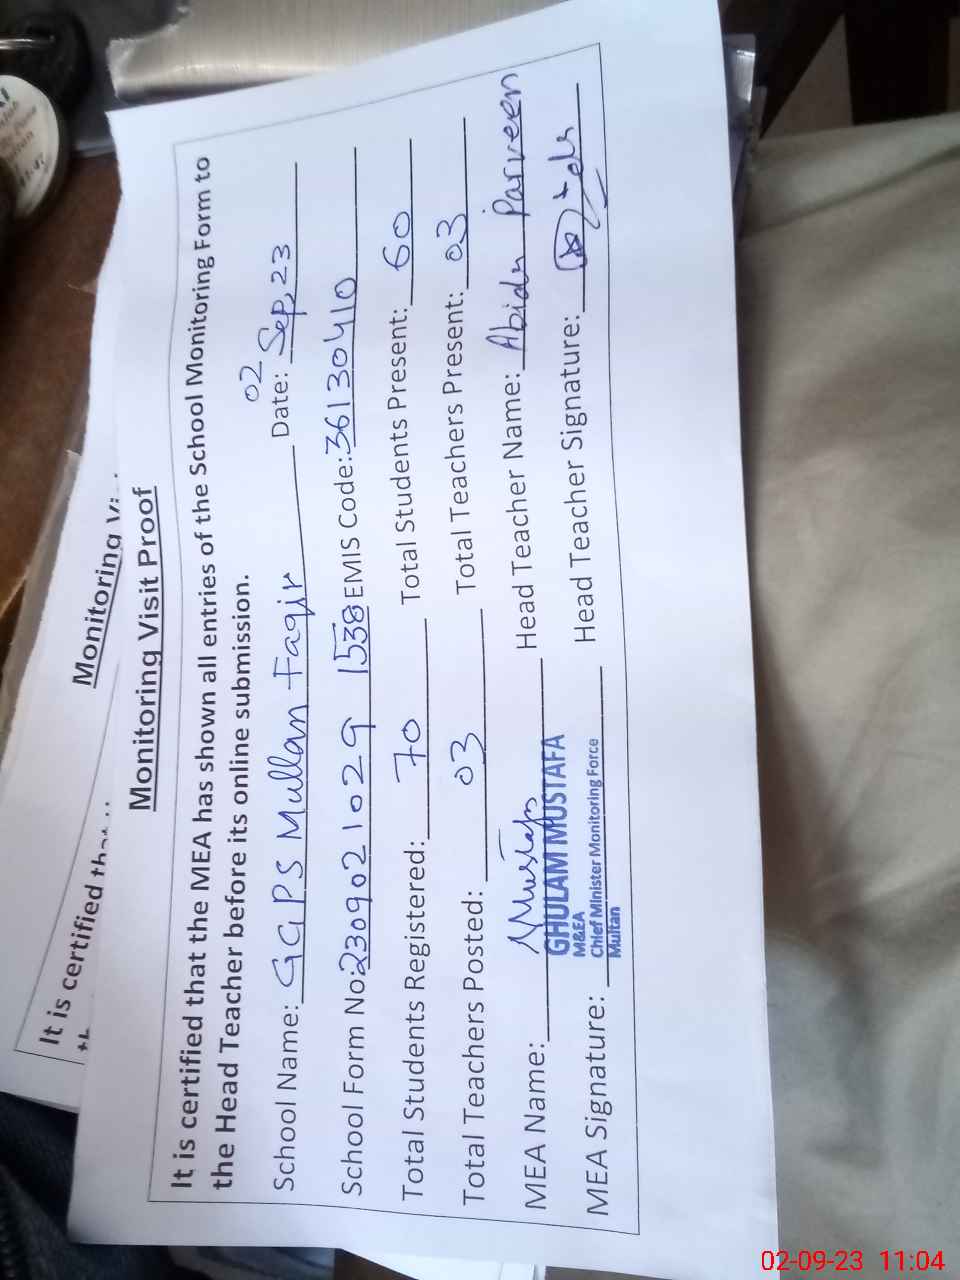 Monitoring Visit Proof
It is certified that the MEA has shown all entries of the School Monitoring Form to
the Head Teacher before its online submission.
School Name: GGPS Mullan Faqir Date: 02 Sep, 23
School Form No: 2309021029 1538 EMIS Code: 36130410
Total Students Registered: 70 Total Students Present: 60
Total Teachers Posted: 03 Total Teachers Present: 03
MEA Name: Head Teacher Name: Abida Parveen
GHULAM MUSTAFA
M&EA
Chief Minister Monitoring Force
Multan
MEA Signature: Head Teacher Signature:
Monitoring
It is certified that
02-09-23 11:04